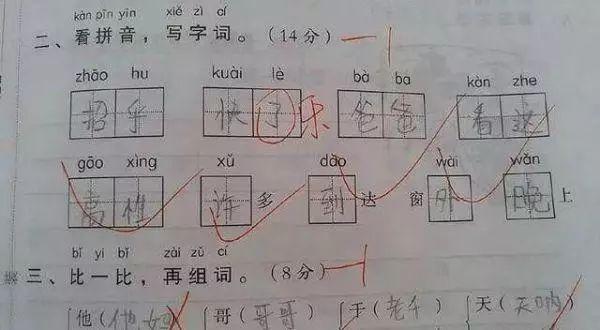 kàn pīn yīn xiě zì cí
二、看拼音，写字词。（14分） —1
zhāo hu kuài lè bà ba kàn zhe
招乎 快了 乐 爸爸 看这
gāo xìng xǔ dào wài wǎn
高性 许多 到达 窗外 晚上
bǐ yi bǐ zài zǔ cí
三、比一比，再组词。（8分） —1
他（他 哥（哥哥） 于（老 天（天